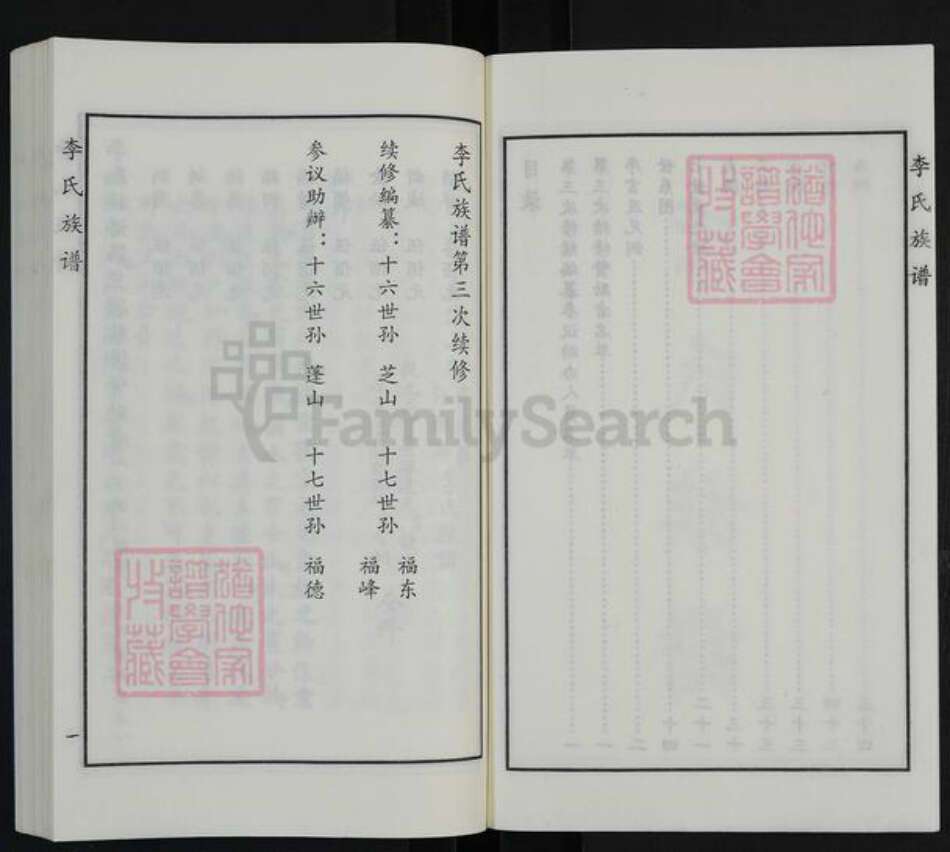 李氏族谱
李氏族谱第三次续修
续修编纂：十六世孙 芝山 十七世孙 福东 福峰
参议助辦：十六世孙 蓬山 十七世孙 福德
李氏族谱
一
猶他家譜學會收藏
猶他家譜學會收藏
FamilySearch